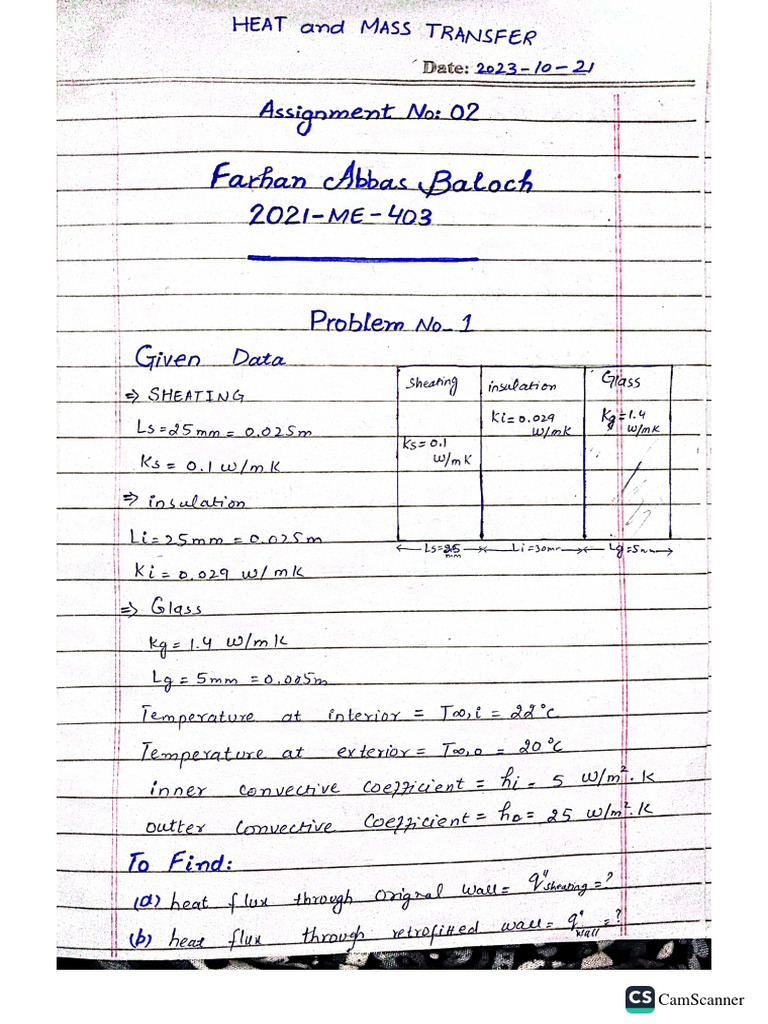 HEAT and MASS TRANSFER
Date: 2023-10-21
Assignment No: 02
Farhan Abbas Baloch
2021-ME-403
Problem No_ 1
Given Data
⇒ SHEATING
Ls=25mm = 0.025m
Ks = 0.1 W/mK
⇒ insulation
Li=25mm = 0.025m
Ki = 0.029 W/mK
⇒ Glass
Kg = 1.4 W/mK
Lg = 5mm = 0.005m
Sheating
insulation
Glass
Ki=0.029
W/mK
Kg=1.4
W/mK
Ks=0.1
W/mK
Ls=25
mm
Li=30mm
Lg=5mm
Temperature at interior = T∞,i = 22°C
Temperature at exterior = T∞,o = 20°C
inner convective coefficient = hi = 5 W/m².K
outter convective coefficient = ho = 25 W/m².K
To Find:
(a) heat flux through orignal wall = q"sheating=?
(b) heat flux through retrofitted wall = q"wall=?
CS CamScanner